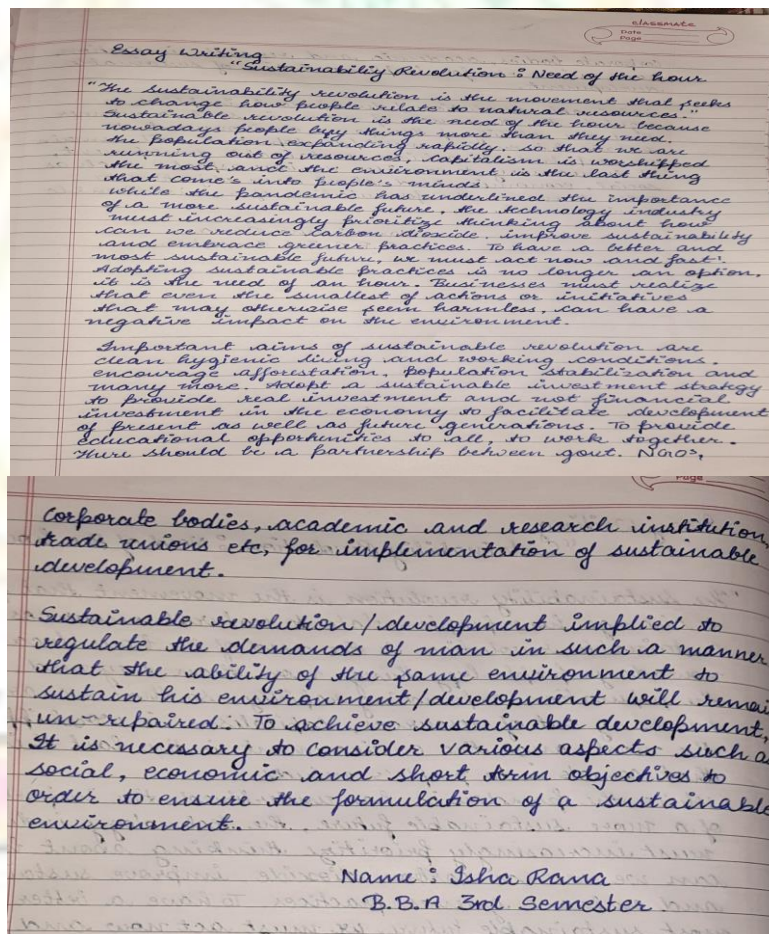 classmate
Date
Page
Essay Writing
"Sustainability Revolution : Need of the hour
"The sustainability revolution is the movement that seeks
to change how people relate to natural resources."
Sustainable revolution is the need of the hour because
nowadays people buy things more than they need.
The population expanding rapidly. so that we are
running out of resources, capitalism is worshipped
the most and the environment is the last thing
that come's into people's minds.
while the pandemic has underlined the importance
of a more sustainable future, the technology industry
must increasingly prioritize thinking about how
can we reduce carbon dioxide improve sustainability
and embrace greener practices. To have a better and
most sustainable future, we must act now and fast!
Adopting sustainable practices is no longer an option,
it is the need of an hour. Businesses must realize
that even the smallest of actions or initiatives
that may otherwise seem harmless, can have a
negative impact on the environment.
Important aims of sustainable revolution are
clean hygienic living and working conditions.
encourage afforestation, population stabilization and
many more. Adopt a sustainable investment strategy
to provide real investment and not financial
investment in the economy to facilitate development
of present as well as future generations. To provide
educational opportunities to all, to work together.
There should be a partnership between govt. NGOs,
Page
Corporate bodies, academic and research institution,
trade unions etc, for implementation of sustainable
development.
Sustainable revolution / development implied to
regulate the demands of man in such a manner
that the ability of the same environment to
sustain his environment/development will remai
un-repaired. To achieve sustainable development,
It is necessary to consider various aspects such as
social, economic and short term objectives to
order to ensure the formulation of a sustainable
environment.
Name : Isha Rana
B.B.A 3rd Semester